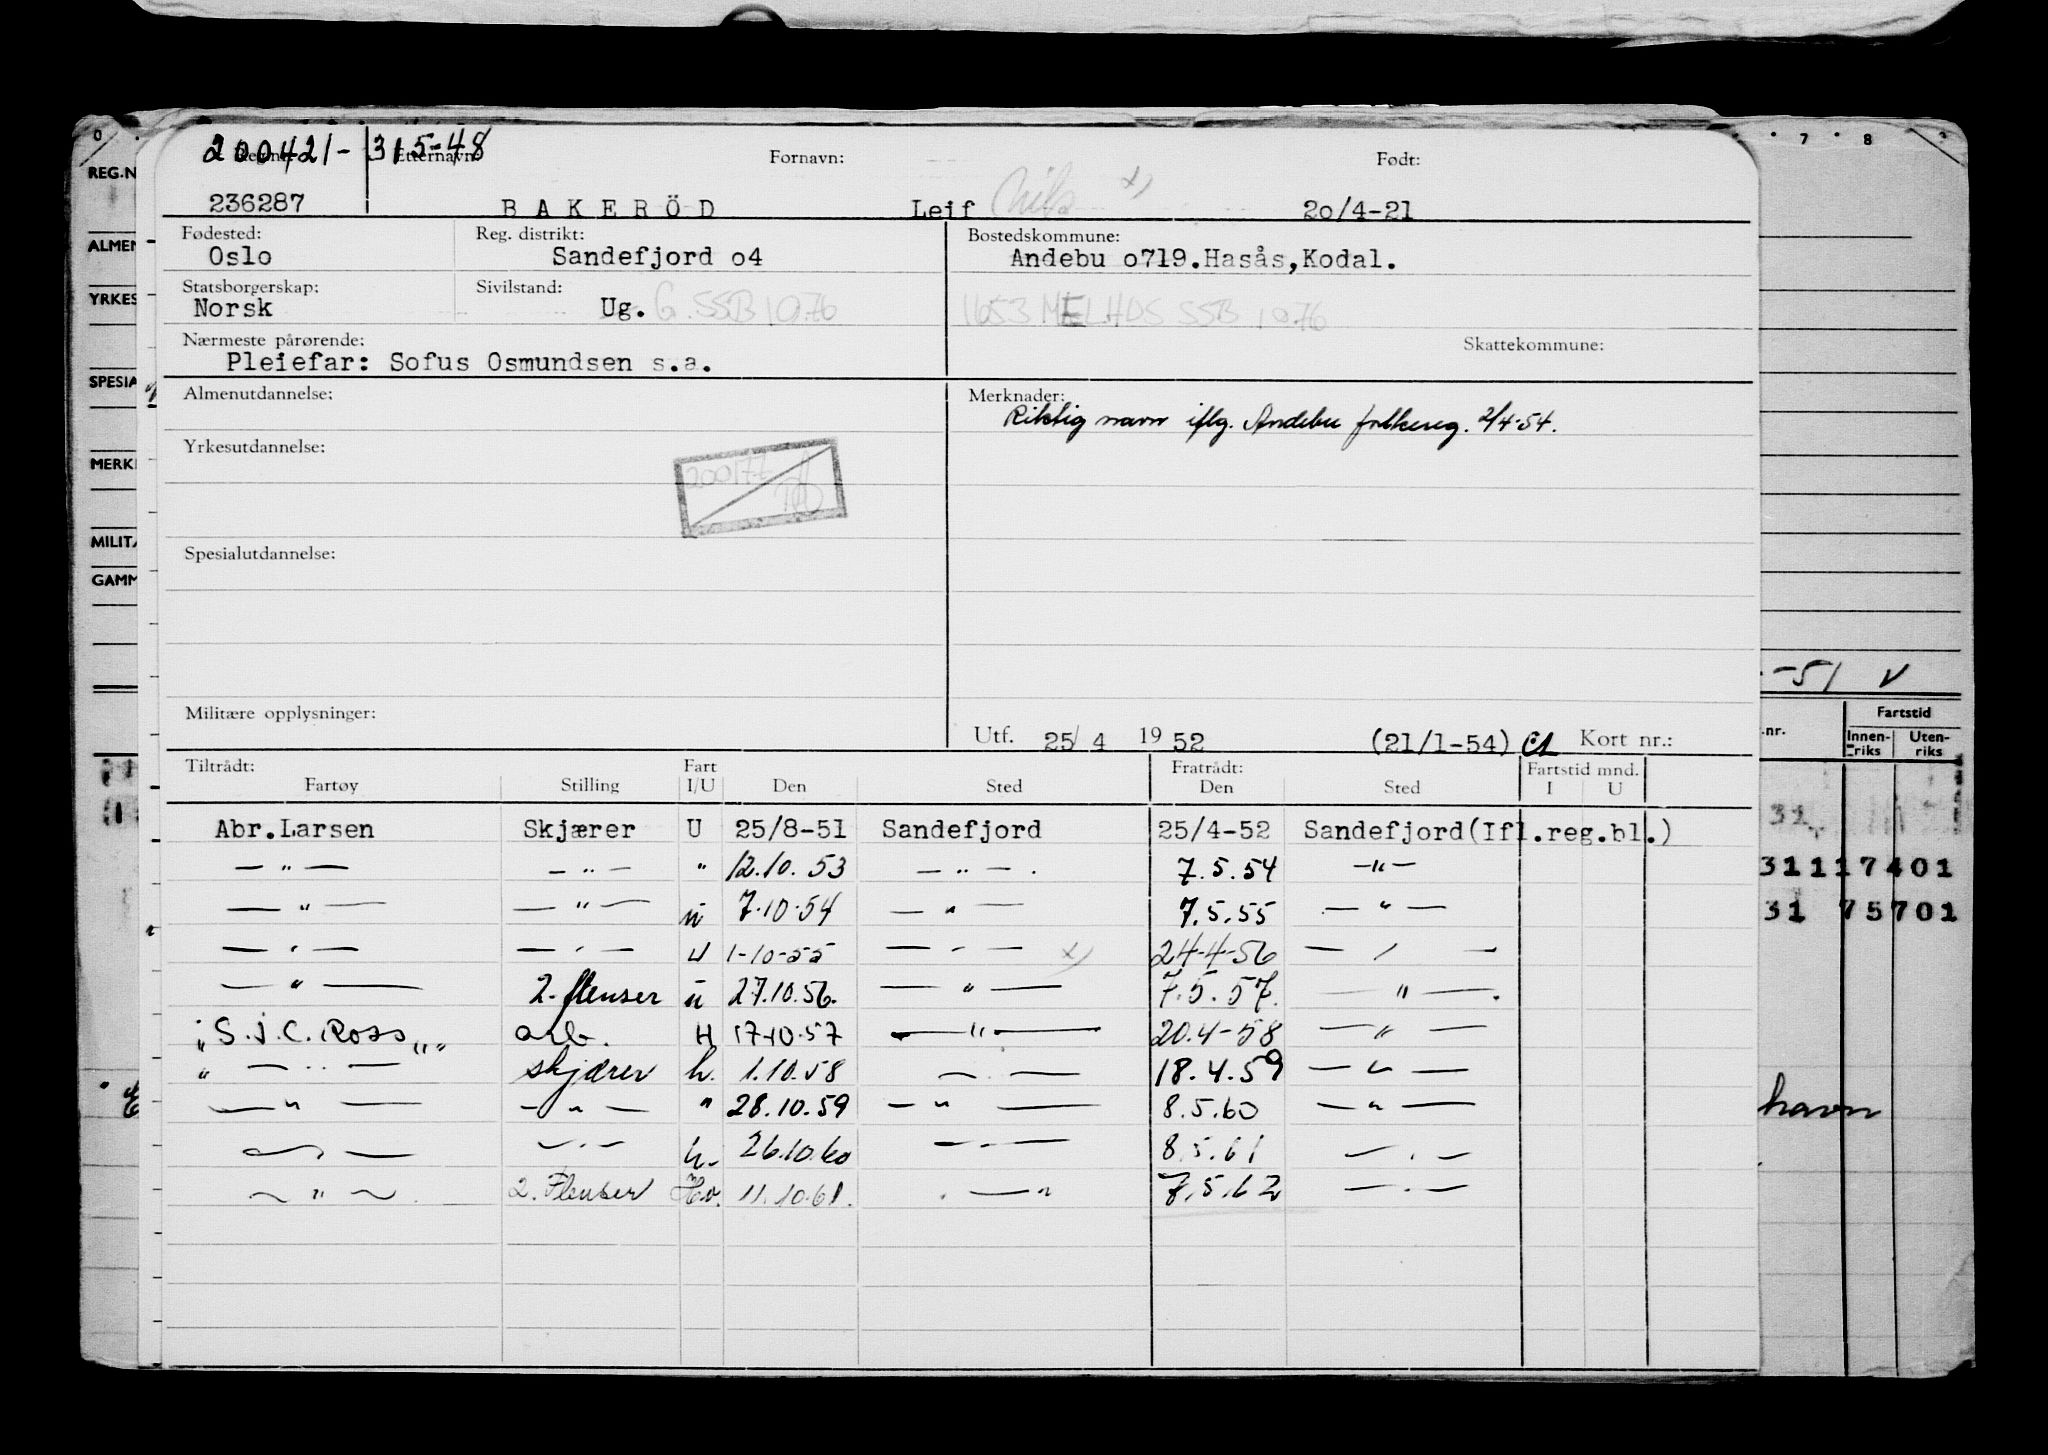 200421- 315-48
Reg.nr.: Etternavn: Fornavn: Født:
236287 BAKERÖD Leif Nils x) 2o/4-21
Fødested: Reg. distrikt: Bostedskommune:
Oslo Sandefjord o4 Andebu o719.Hasås,Kodal.
Statsborgerskap: Sivilstand:
Norsk Ug. G. SSB 1076 1653 MELHUS SSB 1076
Nærmeste pårørende: Skattekommune:
Pleiefar: Sofus Osmundsen s.a.
Almenutdannelse: Merknader:
Riktig navn iflg. Andebu folkereg. 2/4-54.
Yrkesutdannelse:
200177
Spesialutdannelse:
Militære opplysninger:
Utf. 25/4 1952 (21/1-54) Kort nr.:
Tiltrådt: Fart Fratrådt: Fartstid mnd.
Fartøy Stilling I/U Den Sted Den Sted I U
Abr.Larsen Skjærer U 25/8-51 Sandefjord 25/4-52 Sandefjord(Ifl.reg.bl.)
— " — — " — " 12.10.53 — " — 7.5.54 — " —
— " — — " — u 7.10.54 — " — 7.5.55 — " —
— " — — " — u 1-10-55 — " — x) 24-4-56 — " —
— " — 2. flenser u 27.10.56. — " — 7.5.57. — " —
"S.J.C. Ross" arb. H 17.10.57 — " — 20.4-58 — " —
" — " — skjærer h. 1.10.58 — " — 18.4.59 — " —
— " — — " — " 28.10.59 — " — 8.5.60 — " —
— " — — " — h. 26.10.60 — " — 8.5.61 — " —
— " — 2. Flenser Hv. 11.10.61. — " — 7.5.62 — " —
0 7 8
REG.N
ALMEN
YRKES
SPESIA
MERK
MILITÆ
GAMM
-51 V
.nr. Fartstid
Innen-riks Uten-riks
31
31117401
31 75701
havn